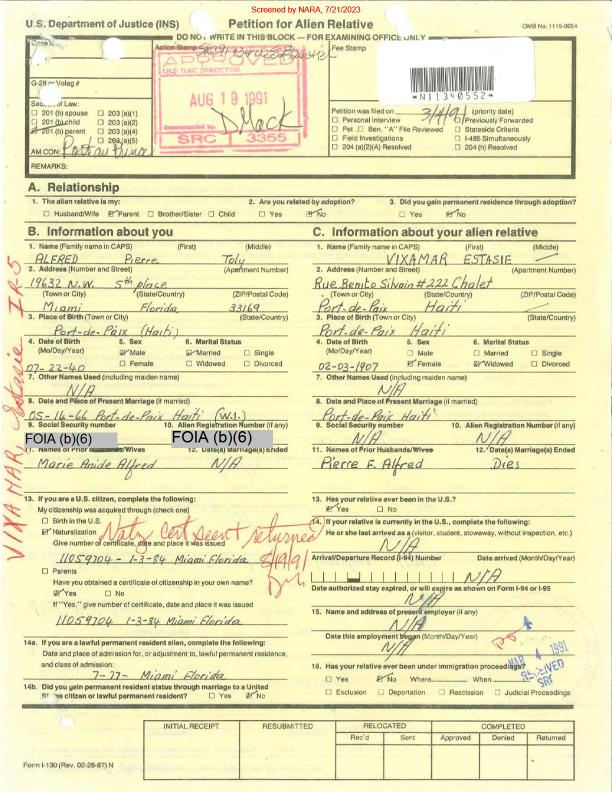 Screened by NARA, 7/21/2023
U.S. Department of Justice (INS) Petition for Alien Relative OMB No. 1115-0054
DO NOT WRITE IN THIS BLOCK — FOR EXAMINING OFFICE ONLY
Action Stamp Fee Stamp
APPROVED
DIRECTOR
AUG 19 1991
D. Mack
SRC 3355
*N11340552*
G-28 or Volag #
Section of Law:
☐ 201 (b) spouse ☐ 203 (a)(1)
☐ 201 (b) child ☐ 203 (a)(2)
☑ 201 (b) parent ☐ 203 (a)(4)
☐ 203 (a)(5)
AM CON: Port au Prince
REMARKS:
Petition was filed on 3/4/91 (priority date)
☐ Personal Interview ☐ Previously Forwarded
☐ Pet. ☐ Ben. "A" File Reviewed ☐ Stateside Criteria
☐ Field Investigations ☐ I-485 Simultaneously
☐ 204 (a)(2)(A) Resolved ☐ 204 (h) Resolved
A. Relationship
1. The alien relative is my: 2. Are you related by adoption? 3. Did you gain permanent residence through adoption?
☐ Husband/Wife ☑ Parent ☐ Brother/Sister ☐ Child ☐ Yes ☑ No ☐ Yes ☑ No
B. Information about you
1. Name (Family name in CAPS) (First) (Middle)
ALFRED Pierre Toly
2. Address (Number and Street) (Apartment Number)
19632 N.W. 5th place
(Town or City) (State/Country) (ZIP/Postal Code)
Miami Florida 33169
3. Place of Birth (Town or City) (State/Country)
Port-de-Paix (Haiti)
4. Date of Birth (Mo/Day/Year) 5. Sex 6. Marital Status
☑ Male ☑ Married ☐ Single
07-22-40 ☐ Female ☐ Widowed ☐ Divorced
7. Other Names Used (including maiden name)
N/A
8. Date and Place of Present Marriage (if married)
05-14-66 Port-de-Paix Haiti (W.I.)
9. Social Security number 10. Alien Registration Number (if any)
FOIA (b)(6) FOIA (b)(6)
11. Names of Prior Husbands/Wives 12. Date(s) Marriage(s) Ended
Marie Anide Alfred N/A
13. If you are a U.S. citizen, complete the following:
My citizenship was acquired through (check one)
☐ Birth in the U.S.
☑ Naturalization
Give number of certificate, date and place it was issued
11059704 - 1-3-84 Miami Florida
Natz cert seen & returned
8/19/91
☐ Parents
Have you obtained a certificate of citizenship in your own name?
☑ Yes ☐ No
If "Yes," give number of certificate, date and place it was issued
11059704 1-3-84 Miami Florida
14a. If you are a lawful permanent resident alien, complete the following:
Date and place of admission for, or adjustment to, lawful permanent residence,
and class of admission:
7-77- Miami Florida
14b. Did you gain permanent resident status through marriage to a United
States citizen or lawful permanent resident? ☐ Yes ☑ No
C. Information about your alien relative
1. Name (Family name in CAPS) (First) (Middle)
VIXAMAR ESTASIE
2. Address (Number and Street) (Apartment Number)
Rue Benito Silvain #222 Chalet
(Town or City) (State/Country) (ZIP/Postal Code)
Port-de-Paix Haiti
3. Place of Birth (Town or City) (State/Country)
Port-de-Paix Haiti
4. Date of Birth (Mo/Day/Year) 5. Sex 6. Marital Status
☐ Male ☐ Married ☐ Single
02-03-1907 ☑ Female ☑ Widowed ☐ Divorced
7. Other Names Used (including maiden name)
N/A
8. Date and Place of Present Marriage (if married)
Port-de-Paix Haiti
9. Social Security number 10. Alien Registration Number (if any)
N/A N/A
11. Names of Prior Husbands/Wives 12. Date(s) Marriage(s) Ended
Pierre F. Alfred Dies
13. Has your relative ever been in the U.S.?
☑ Yes ☐ No
14. If your relative is currently in the U.S., complete the following:
He or she last arrived as a (visitor, student, stowaway, without inspection, etc.)
N/A
Arrival/Departure Record (I-94) Number Date arrived (Month/Day/Year)
N/A
Date authorized stay expired, or will expire as shown on Form I-94 or I-95
N/A
15. Name and address of present employer (if any)
N/A
Date this employment began (Month/Day/Year)
N/A
16. Has your relative ever been under immigration proceedings?
☐ Yes ☑ No Where When
☐ Exclusion ☐ Deportation ☐ Rescission ☐ Judicial Proceedings
MAR 4 1991
RECEIVED
SRC
VIXAMAR, Estasie IR-5
INITIAL RECEIPT RESUBMITTED RELOCATED COMPLETED
Rec'd Sent Approved Denied Returned
Form I-130 (Rev. 02-28-87) N